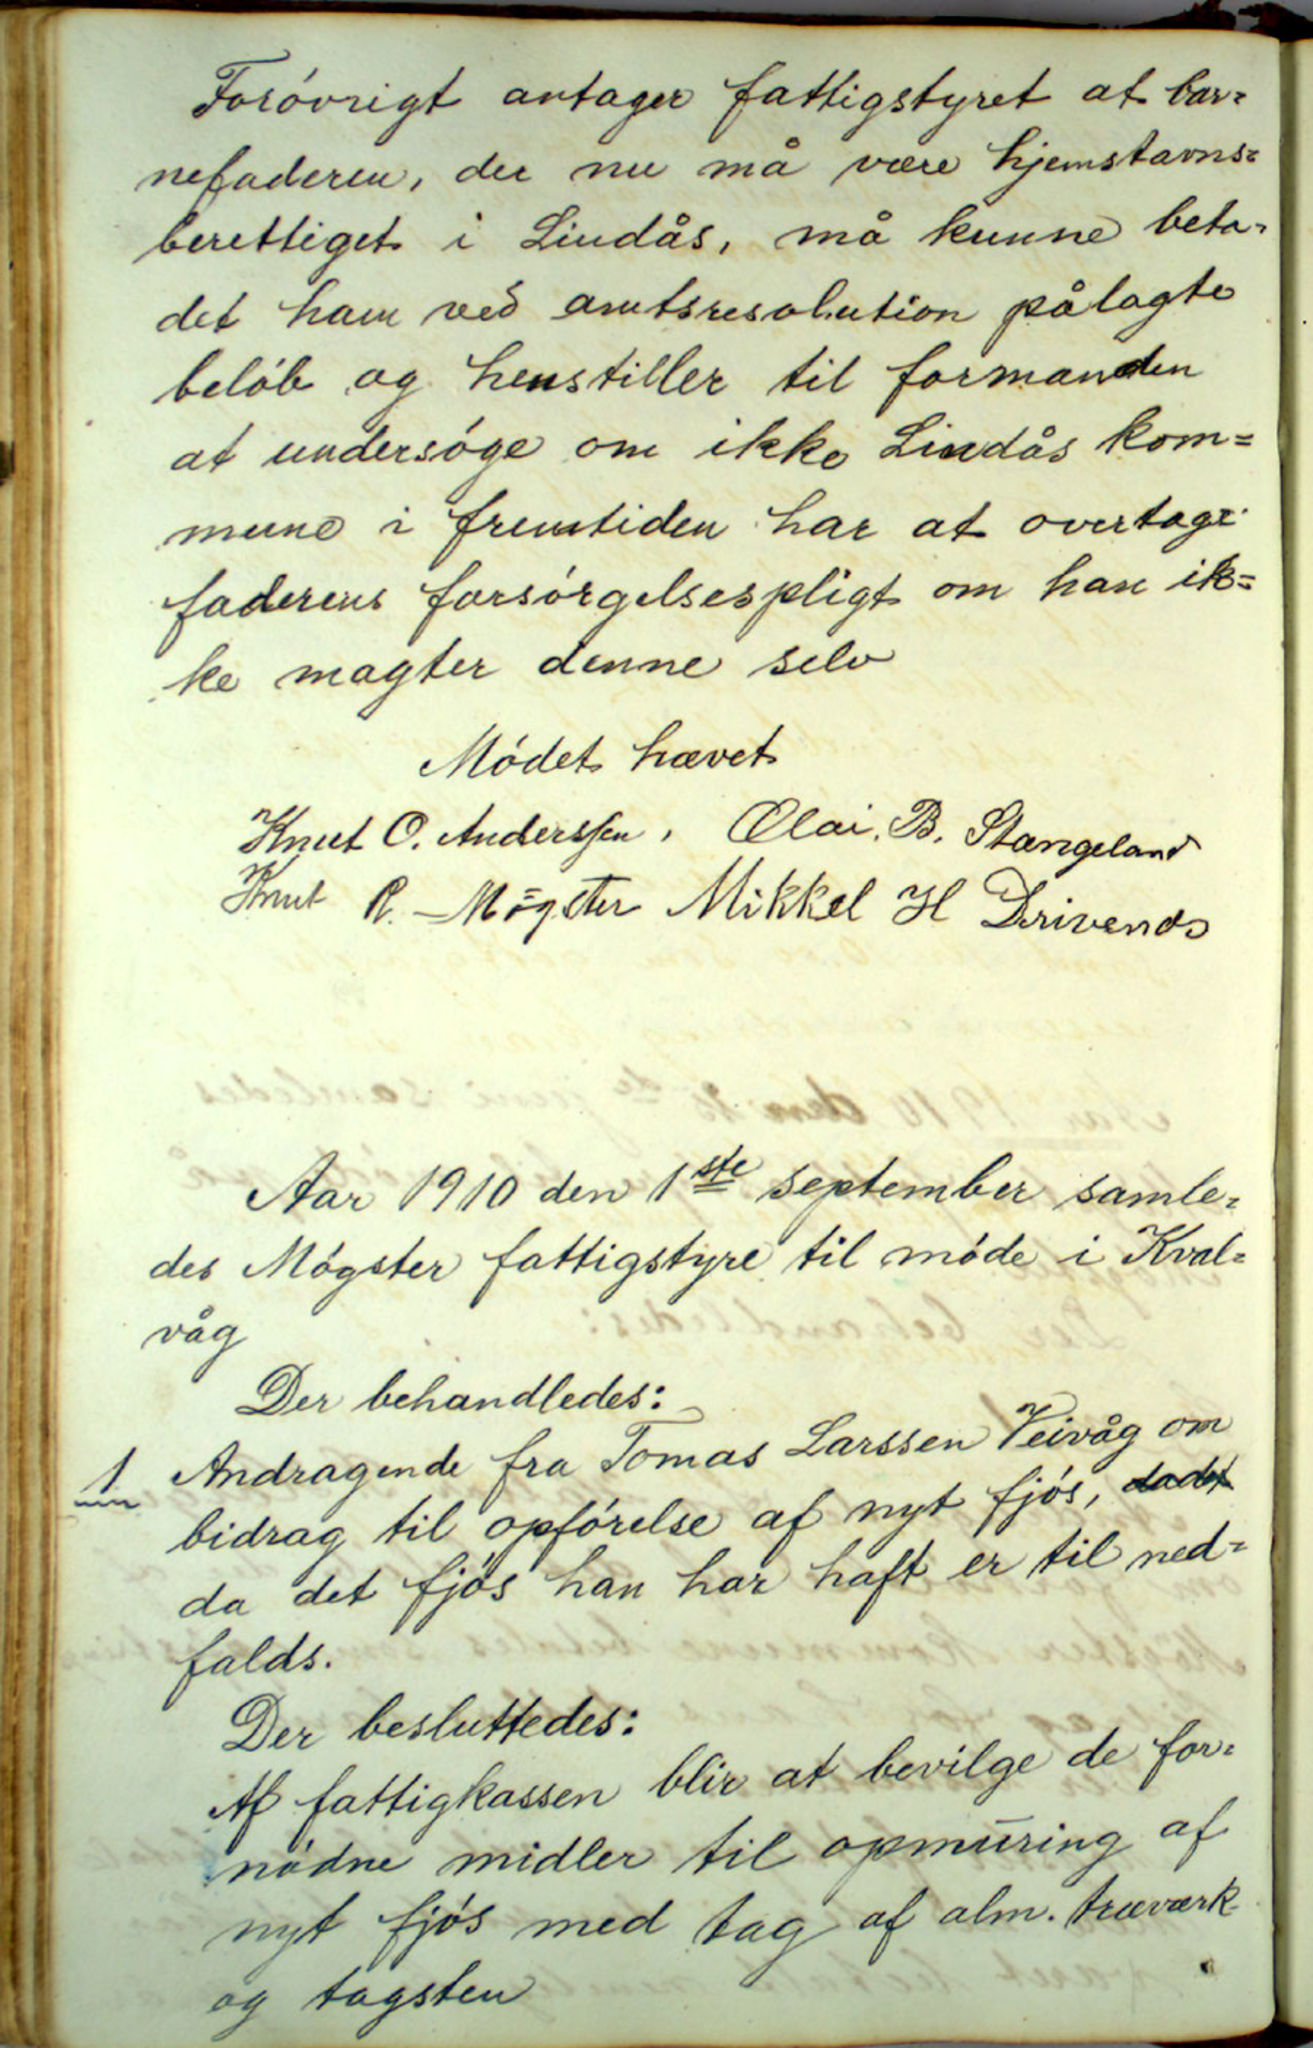 Forøvrigt antager fattigstyret at bar=
nefaderen, der nu må være hjemstavns=
berettiget i Lindås, må kunne beta=
det ham ved amtsresolution pålagte
beløb og henstiller til formanden
at undersøge om ikke Lindås kom=
mune i fremtiden har at overtage
faderens forsørgelsespligt om han ik=
ke magter denne selv
Mødet hævet
Knut O. Anderssen, Olai. B. Stangeland
Knut R. Møgster Mikkel H Drivenes
Aar 1910 den 1ste september samle=
des Møgster fattigstyre til møde i Kval=
våg
Der behandledes:
1 Andragende fra Tomas Larssen Veivåg om
bidrag til opførelse af nyt fjøs, dadet
da det fjøs han har haft er til ned=
falds.
Der besluttedes:
Af fattigkassen blir at bevilge de for=
nødne midler til opmuring af
nyt fjøs med tag af alm. træværk
og tagsten